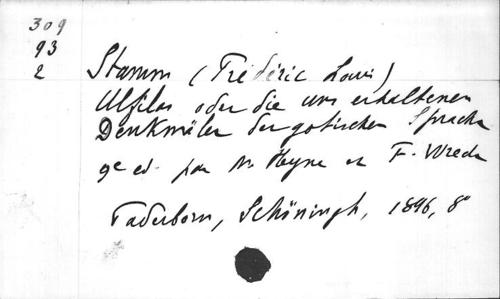 309
93
2
Stamm (Frédéric Louis)
Ulfilas oder die uns erhaltenen
Denkmäler der gotischen Sprache
9e ed. par M. Heyne et F. Wrede
Paderborn, Schöningh, 1896, 8°